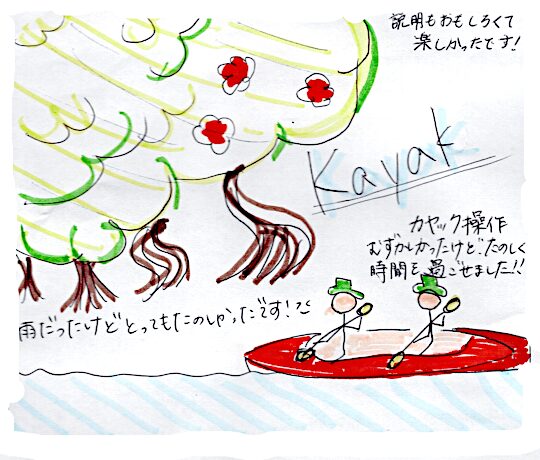 説明もおもしろくて
楽しかったです!
Kayak
カヤック操作
むずかしかったけど、たのしく
時間を過ごせました!!
雨だったけどとってもたのしかったです!